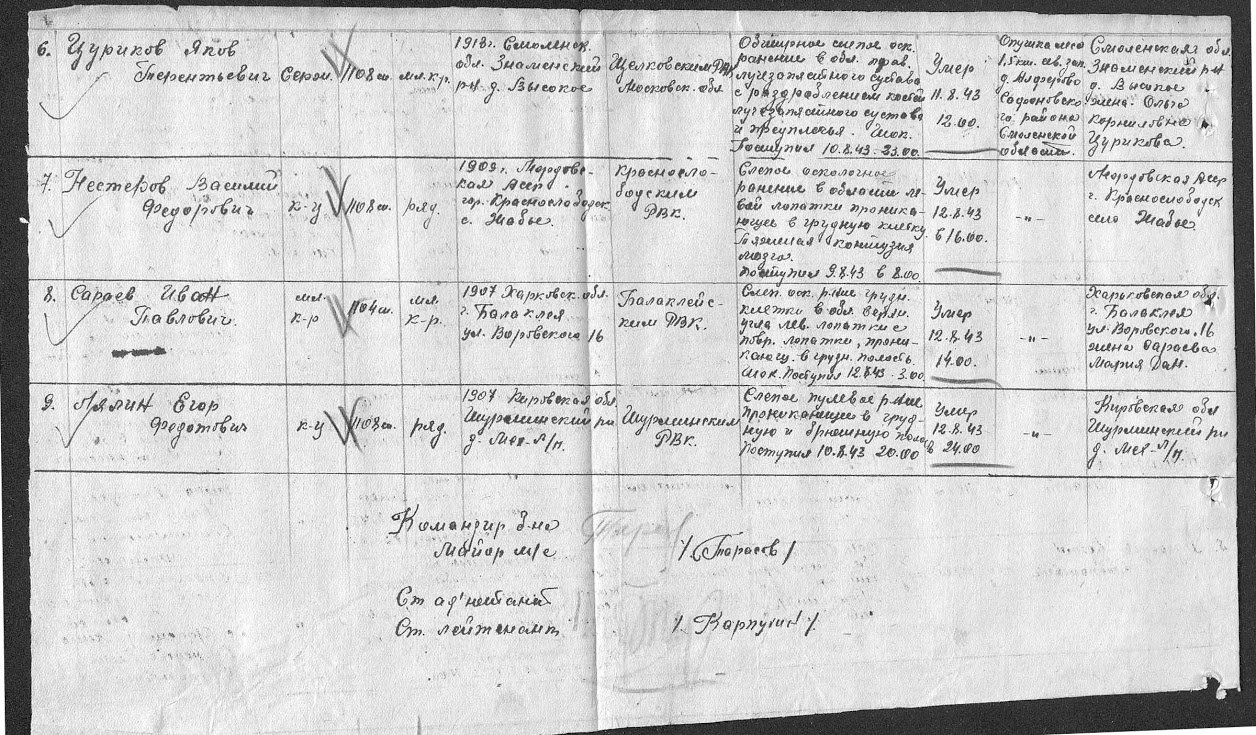 6. Цуриков Яков
Терентьевич
Сержт.
1108 сп.
мл. к-р.
1918 г. Смоленск.
обл. Знаменский
р-н д. Высокое
Щелковским РВК
Московск. обл.
Обширное слепое оск.
ранение в обл. прав.
лучезапястного сустава
с раздроблением костей
лучезапястного сустава
и предплечья. Шок.
Поступил 10.8.43 - 23.00.
Умер
11.8.43
12.00.
Опушка леса
1,5 км. сев. зап.
д. Алферово
Сафоновско-
го района
Смоленской
области.
Смоленская обл.
Знаменский р-н
д. Высокое
жена Ольга
Корниловна
Цурикова.
7. Нестеров Василий
Федорович
к-ц
1108 сп.
ряд.
1909 г. Мордовс-
кая Асср
гор. Краснослободск
с. Жабье.
Красносло-
бодским
РВК.
Слепое осколочное
ранение в области ле-
вой лопатки проника-
ющее в грудную клетку.
Тяжелая контузия
мозга.
Поступил 9.8.43 в 8.00
Умер
12.8.43
в 16.00.
-"-
Мордовская Асср
г. Краснослободск
село Жабье
8. Сараев Иван
Павлович.
мл.
к-р
1104 сп.
мл.
к-р.
1907 Харковск. обл.
г. Балаклея
ул. Воровского 16
Балаклейс-
ким РВК.
Слеп. оск. р-ние грудн.
клетки в обл. верхн.
угла лев. лопатки с
повр. лопатки, прони-
кающ. в грудн. полость.
Шок. Поступил 12.8.43 - 3.00
Умер
12.8.43
14.00.
-"-
Харьковская обл.
г. Балаклея
ул. Воровского. 16
жена Сараева
Мария Дан.
9. Лялин Егор
Федотович
к-ц
1108 сп.
ряд.
1907 Кировская обл
Шурминский р-н
д. Мея-Л/п.
Шурминским
РВК.
Слепое пулевое р-ние
проникающее в груд-
ную и брюшную полос.
Поступил 10.8.43 20.00
Умер
12.8.43
в 24.00
-"-
Кировская обл
Шурминский р-н
д. Мея-Л/п.
Командир б-на
Майор м/с
/. Тарасов /
Ст ад'ютант
Ст. лейтенант
/. Карпухин /.